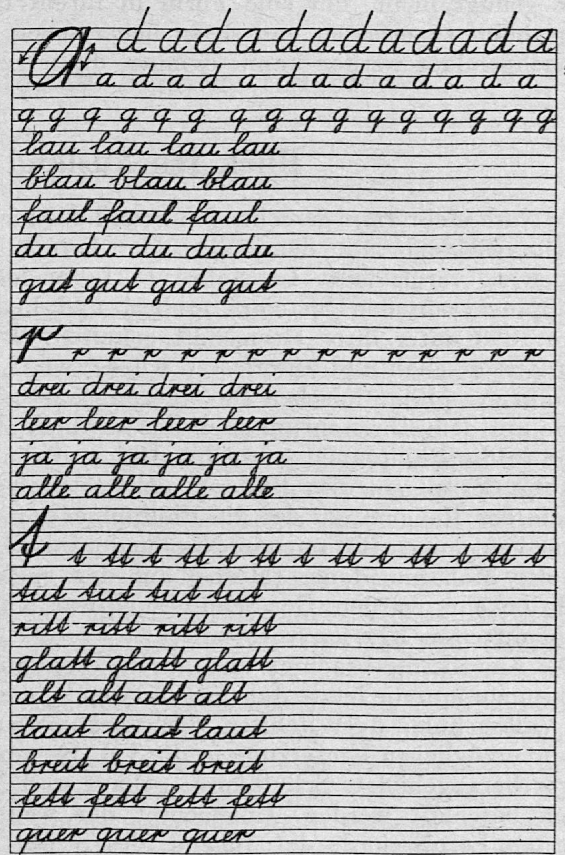 a d a d a d a d a d a d a
a d a d a d a d a d a d a
q g q g q g q g q g q g q g q g
lau lau lau lau
blau blau blau
faul faul faul
du du du du du
gut gut gut gut
r r r r r r r r r r r r r r r
drei drei drei drei
leer leer leer leer
ja ja ja ja ja ja
alle alle alle alle
t t tt t tt t tt t tt t tt t tt t
tut tut tut tut
ritt ritt ritt ritt
glatt glatt glatt
alt alt alt alt
laut laut laut
breit breit breit
fett fett fett fett
quer quer quer